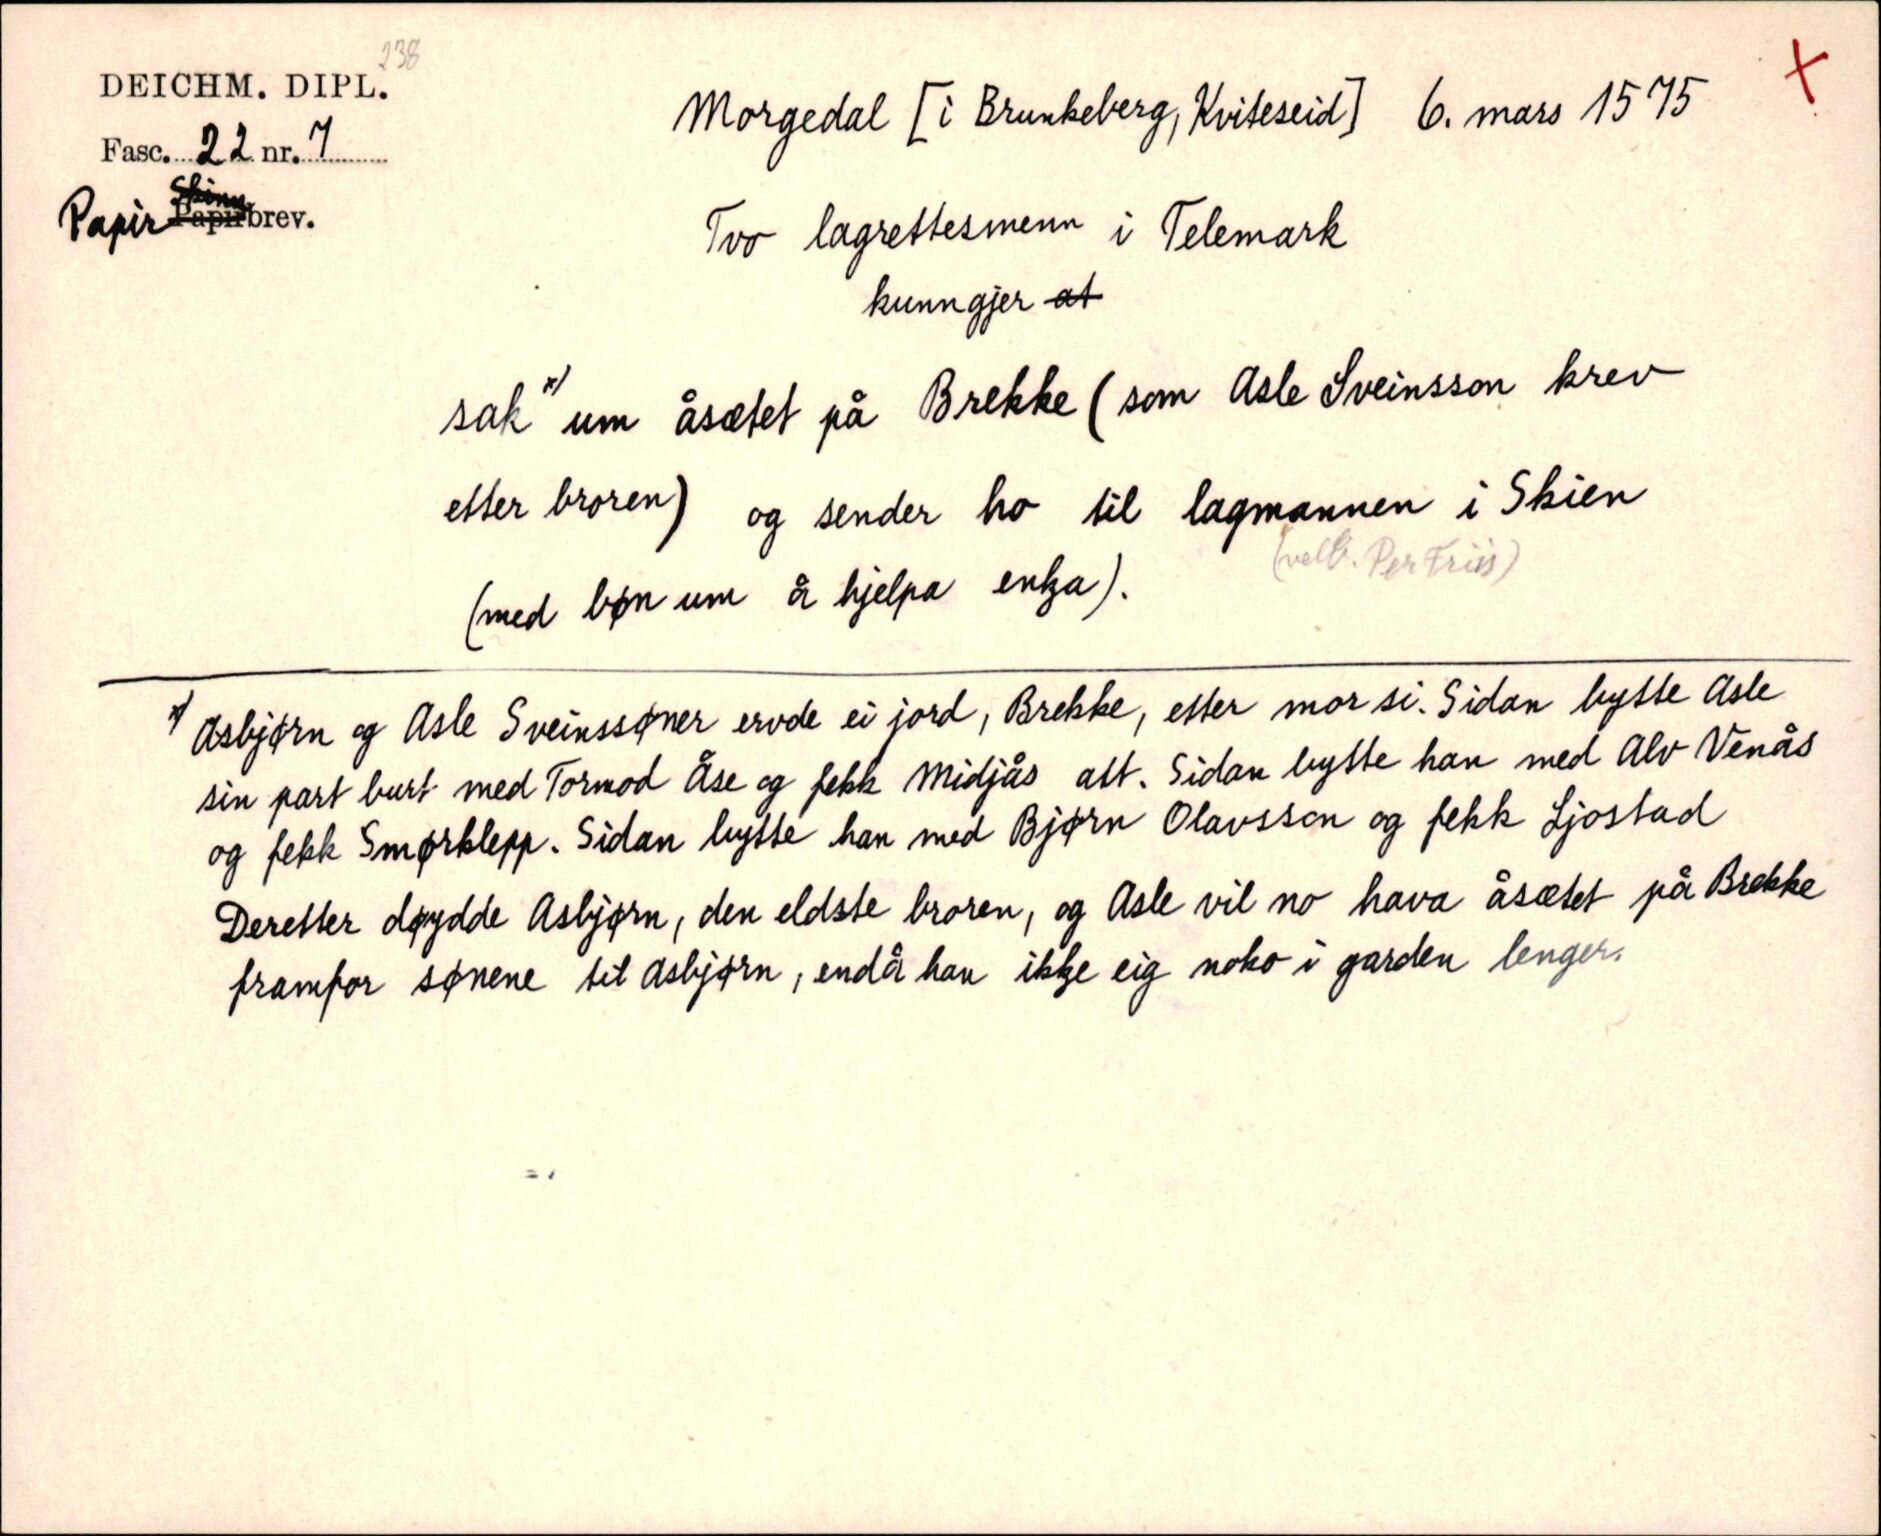 238
DEICHM. DIPL.
Fasc. 22 nr. 7
Skinn
Papir Papirbrev.
Morgedal [i Brunkeberg, Kviteseid] 6. mars 1575
X
Tvo lagrettesmenn i Telemark
kunngjer at
sak x) um åsætet på Brekke (som Asle Sveinsson krev
etter broren) og sender ho til lagmannen i Skien
Per Friis)
(med bøn um å hjelpa enkja).
x) Asbjørn og Asle Sveinssøner ervde ei jord, Brekke, etter mor si. Sidan bytte Asle
sin part burt med Tormod Åse og fekk Midjås att. Sidan bytte han med Alv Venås
og fekk Smørklepp. Sidan bytte han med Bjørn Olavsson og fekk Ljostad
Deretter døydde Asbjørn, den eldste broren, og Asle vil no hava åsætet på Brekke
framfor sønene til Asbjørn, endå han ikkje eig noko i garden lenger.